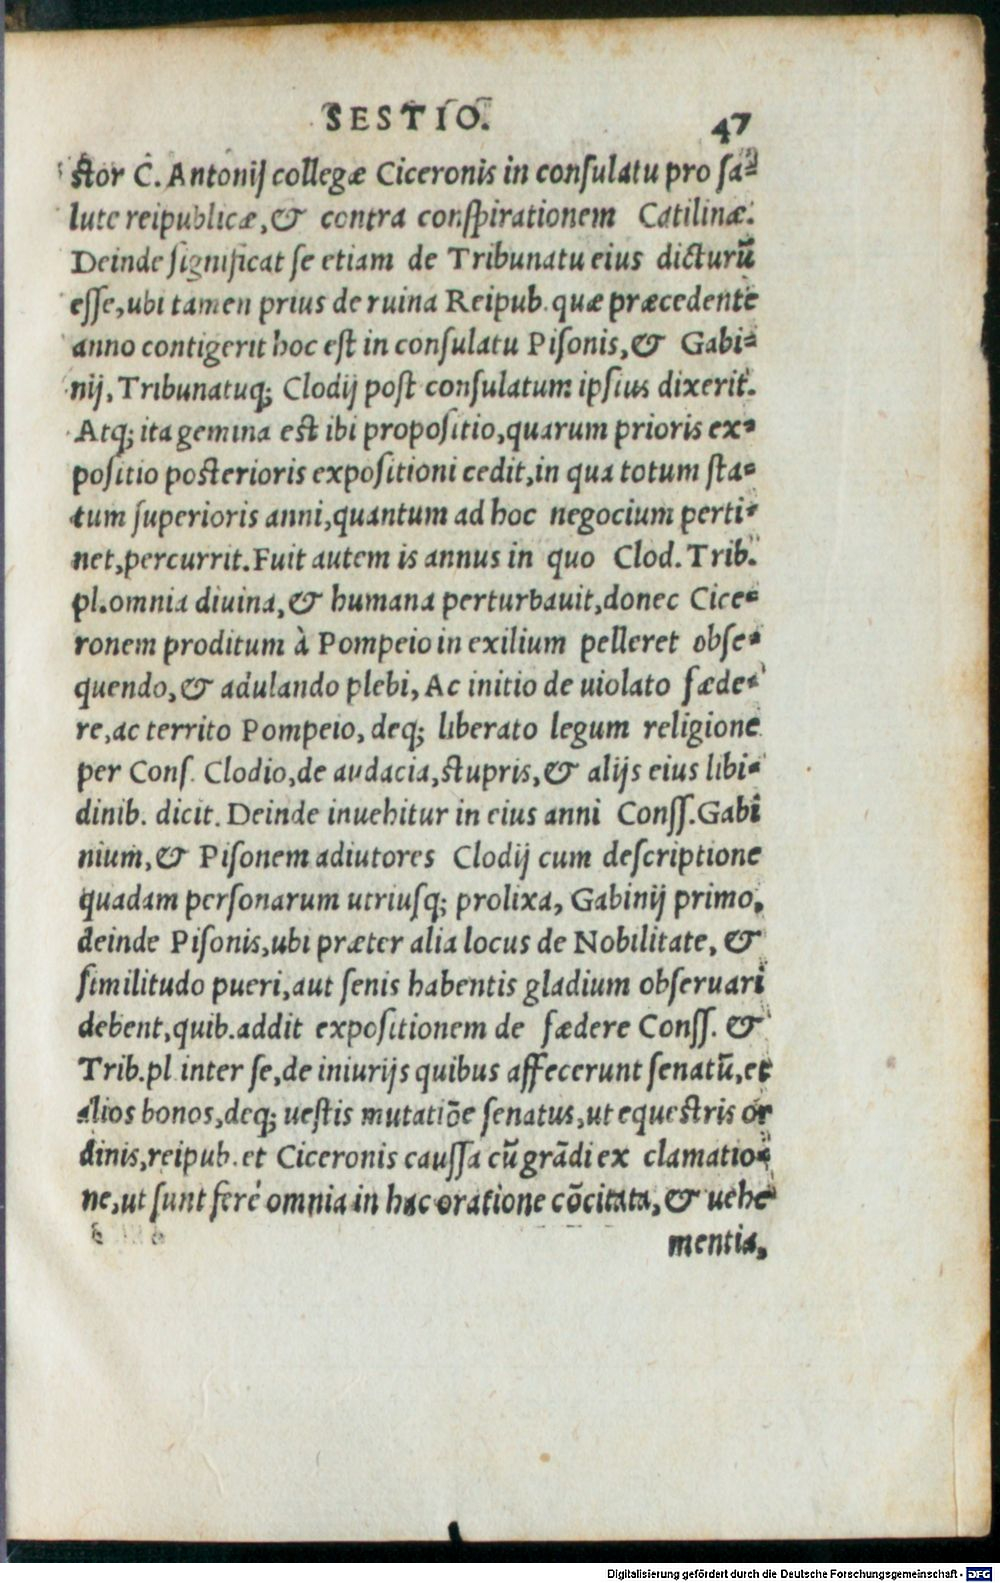 SESTIO. 47
stor C. Antonij collegæ Ciceronis in consulatu pro sa=
lute reipublicæ, & contra conspirationem Catilinæ.
Deinde significat se etiam de Tribunatu eius dicturū
esse, ubi tamen prius de ruina Reipub. quæ præcedente
anno contigerit hoc est in consulatu Pisonis, & Gabi=
nij, Tribunatuq; Clodij post consulatum ipsius dixerit.
Atq; ita gemina est ibi propositio, quarum prioris ex=
positio posterioris expositioni cedit, in qua totum sta=
tum superioris anni, quantum ad hoc negocium perti=
net, percurrit. Fuit autem is annus in quo Clod. Trib.
pl. omnia diuina, & humana perturbauit, donec Cice=
ronem proditum à Pompeio in exilium pelleret obse=
quendo, & adulando plebi, Ac initio de uiolato fæde=
re, ac territo Pompeio, deq; liberato legum religione
per Cons. Clodio, de audacia, stupris, & alijs eius libi=
dinib. dicit. Deinde inuehitur in eius anni Conss. Gabi
nium, & Pisonem adiutores Clodij cum descriptione
quadam personarum utriusq; prolixa, Gabinij primo,
deinde Pisonis, ubi præter alia locus de Nobilitate, &
similitudo pueri, aut senis habentis gladium obseruari
debent, quib. addit expositionem de fædere Conss. &
Trib. pl inter se, de iniurijs quibus affecerunt senatū, et
alios bonos, deq; uestis mutatiōe senatus, ut equestris or
dinis, reipub. et Ciceronis caussa cū grādi ex clamatio=
ne, ut sunt ferè omnia in hac oratione cōcitata, & uehe
mentia,
Digitalisierung gefördert durch die Deutsche Forschungsgemeinschaft - DFG